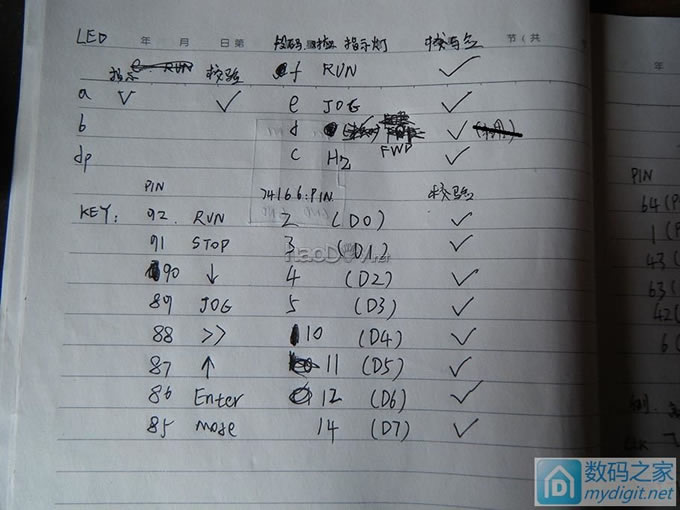 LED 年 月 日 第 段码 指示灯 校验 节(共
指示 校验 f RUN ✓
a ✓ ✓ e JOG ✓
b d FWD ✓
dp c Hz ✓
PIN 74166:PIN 校验
KEY: 92 RUN 2 (D0) ✓
91 STOP 3 (D1) ✓
90 ↓ 4 (D2) ✓
89 JOG 5 (D3) ✓
88 >> 10 (D4) ✓
87 ↑ 11 (D5) ✓
86 Enter 12 (D6) ✓
85 mode 14 (D7) ✓
年
PIN
64(P
1(
43(
63(
42(
6(
数码之家
mydigit.net